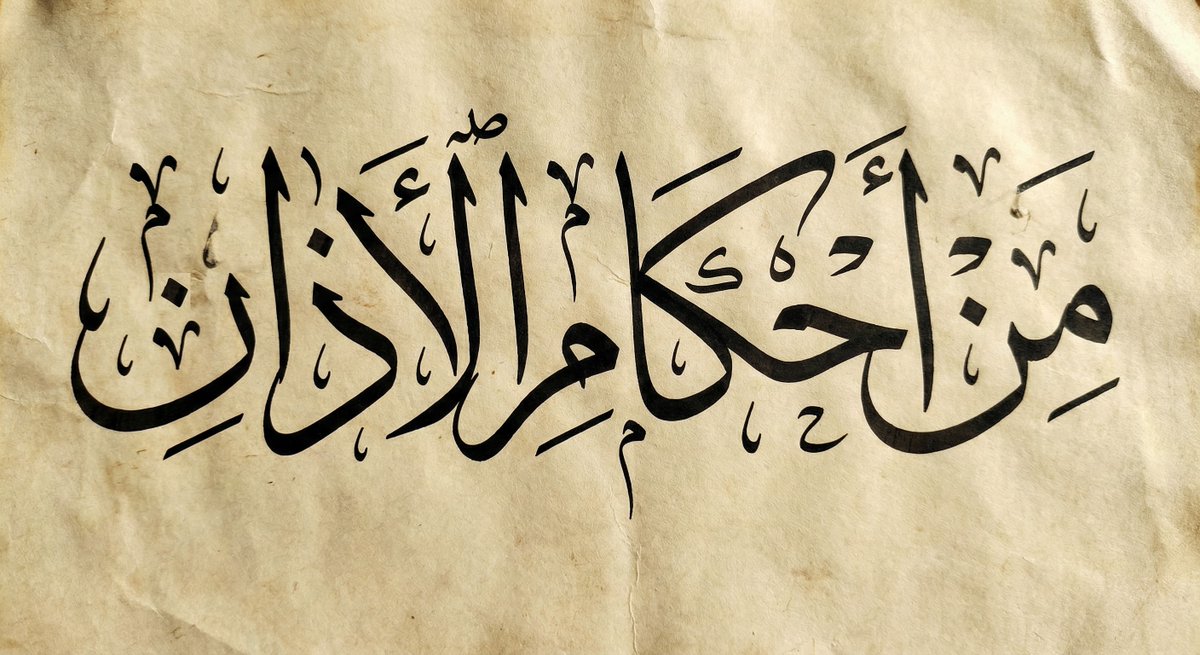 مِنْ أَحْكَامِ ٱلْأَذَانِ